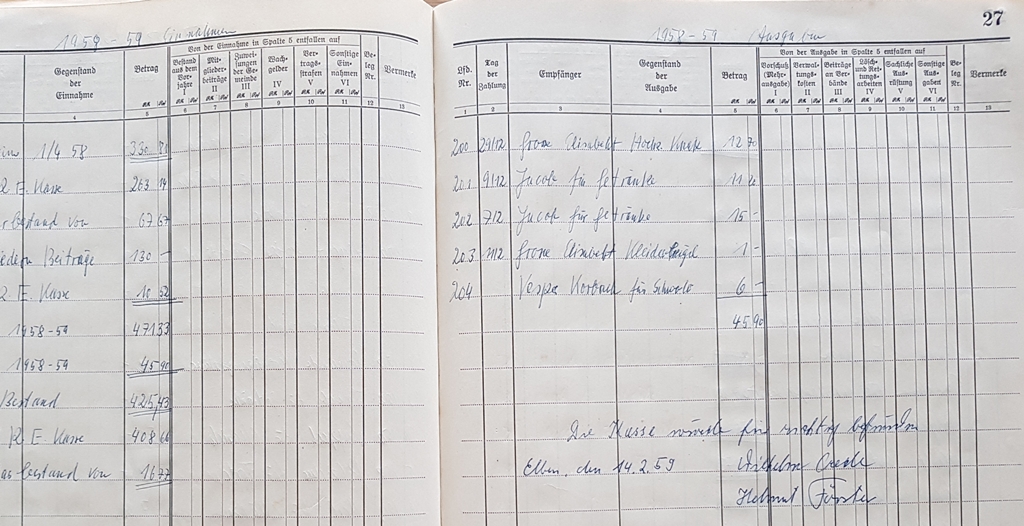 27
1958 – 59 Einnahmen
Gegenstand der Einnahme
Betrag
Von der Einnahme in Spalte 5 entfallen auf
Bestand aus dem Vorjahre I
Mitgliederbeiträge II
Zuweisungen der Gemeinde III
Wachgelder IV
Vertragsstrafen V
Sonstige Einnahmen VI
Beleg Nr.
Vermerke
4 5 6 7 8 9 10 11 12 13
1/4 58
R E. Kasse 263
bestand von 67 67
Beiträge 130 –
R E. Kasse 10 52
1958-59 471 33
1958-59 45 90
Bestand 425,43
R. E. Kasse 408 66
bestand von 16 77
1958-59 Ausgaben
Lfd. Nr.
Tag der Zahlung
Empfänger
Gegenstand der Ausgabe
Betrag
Von der Ausgabe in Spalte 5 entfallen auf
Vorschuß (Mehrausgabe) I
Verwaltungskosten II
Beiträge an Verbände III
Lösch- und Rettungsarbeiten IV
Sachliche Ausrüstung V
Sonstige Ausgaben VI
Beleg Nr.
Vermerke
1 2 3 4 5 6 7 8 9 10 11 12 13
200 29/12 12 70
201 9/12 Jacob für Getränke 11 20
202 7/2 Jacob für Getränke 15 –
203 1 –
204 Vespa Korbach für 6 –
45 90
Die Kasse wurde für richtig befunden
Elben, den 14.2.59 Wilhelm
Helmut Förster